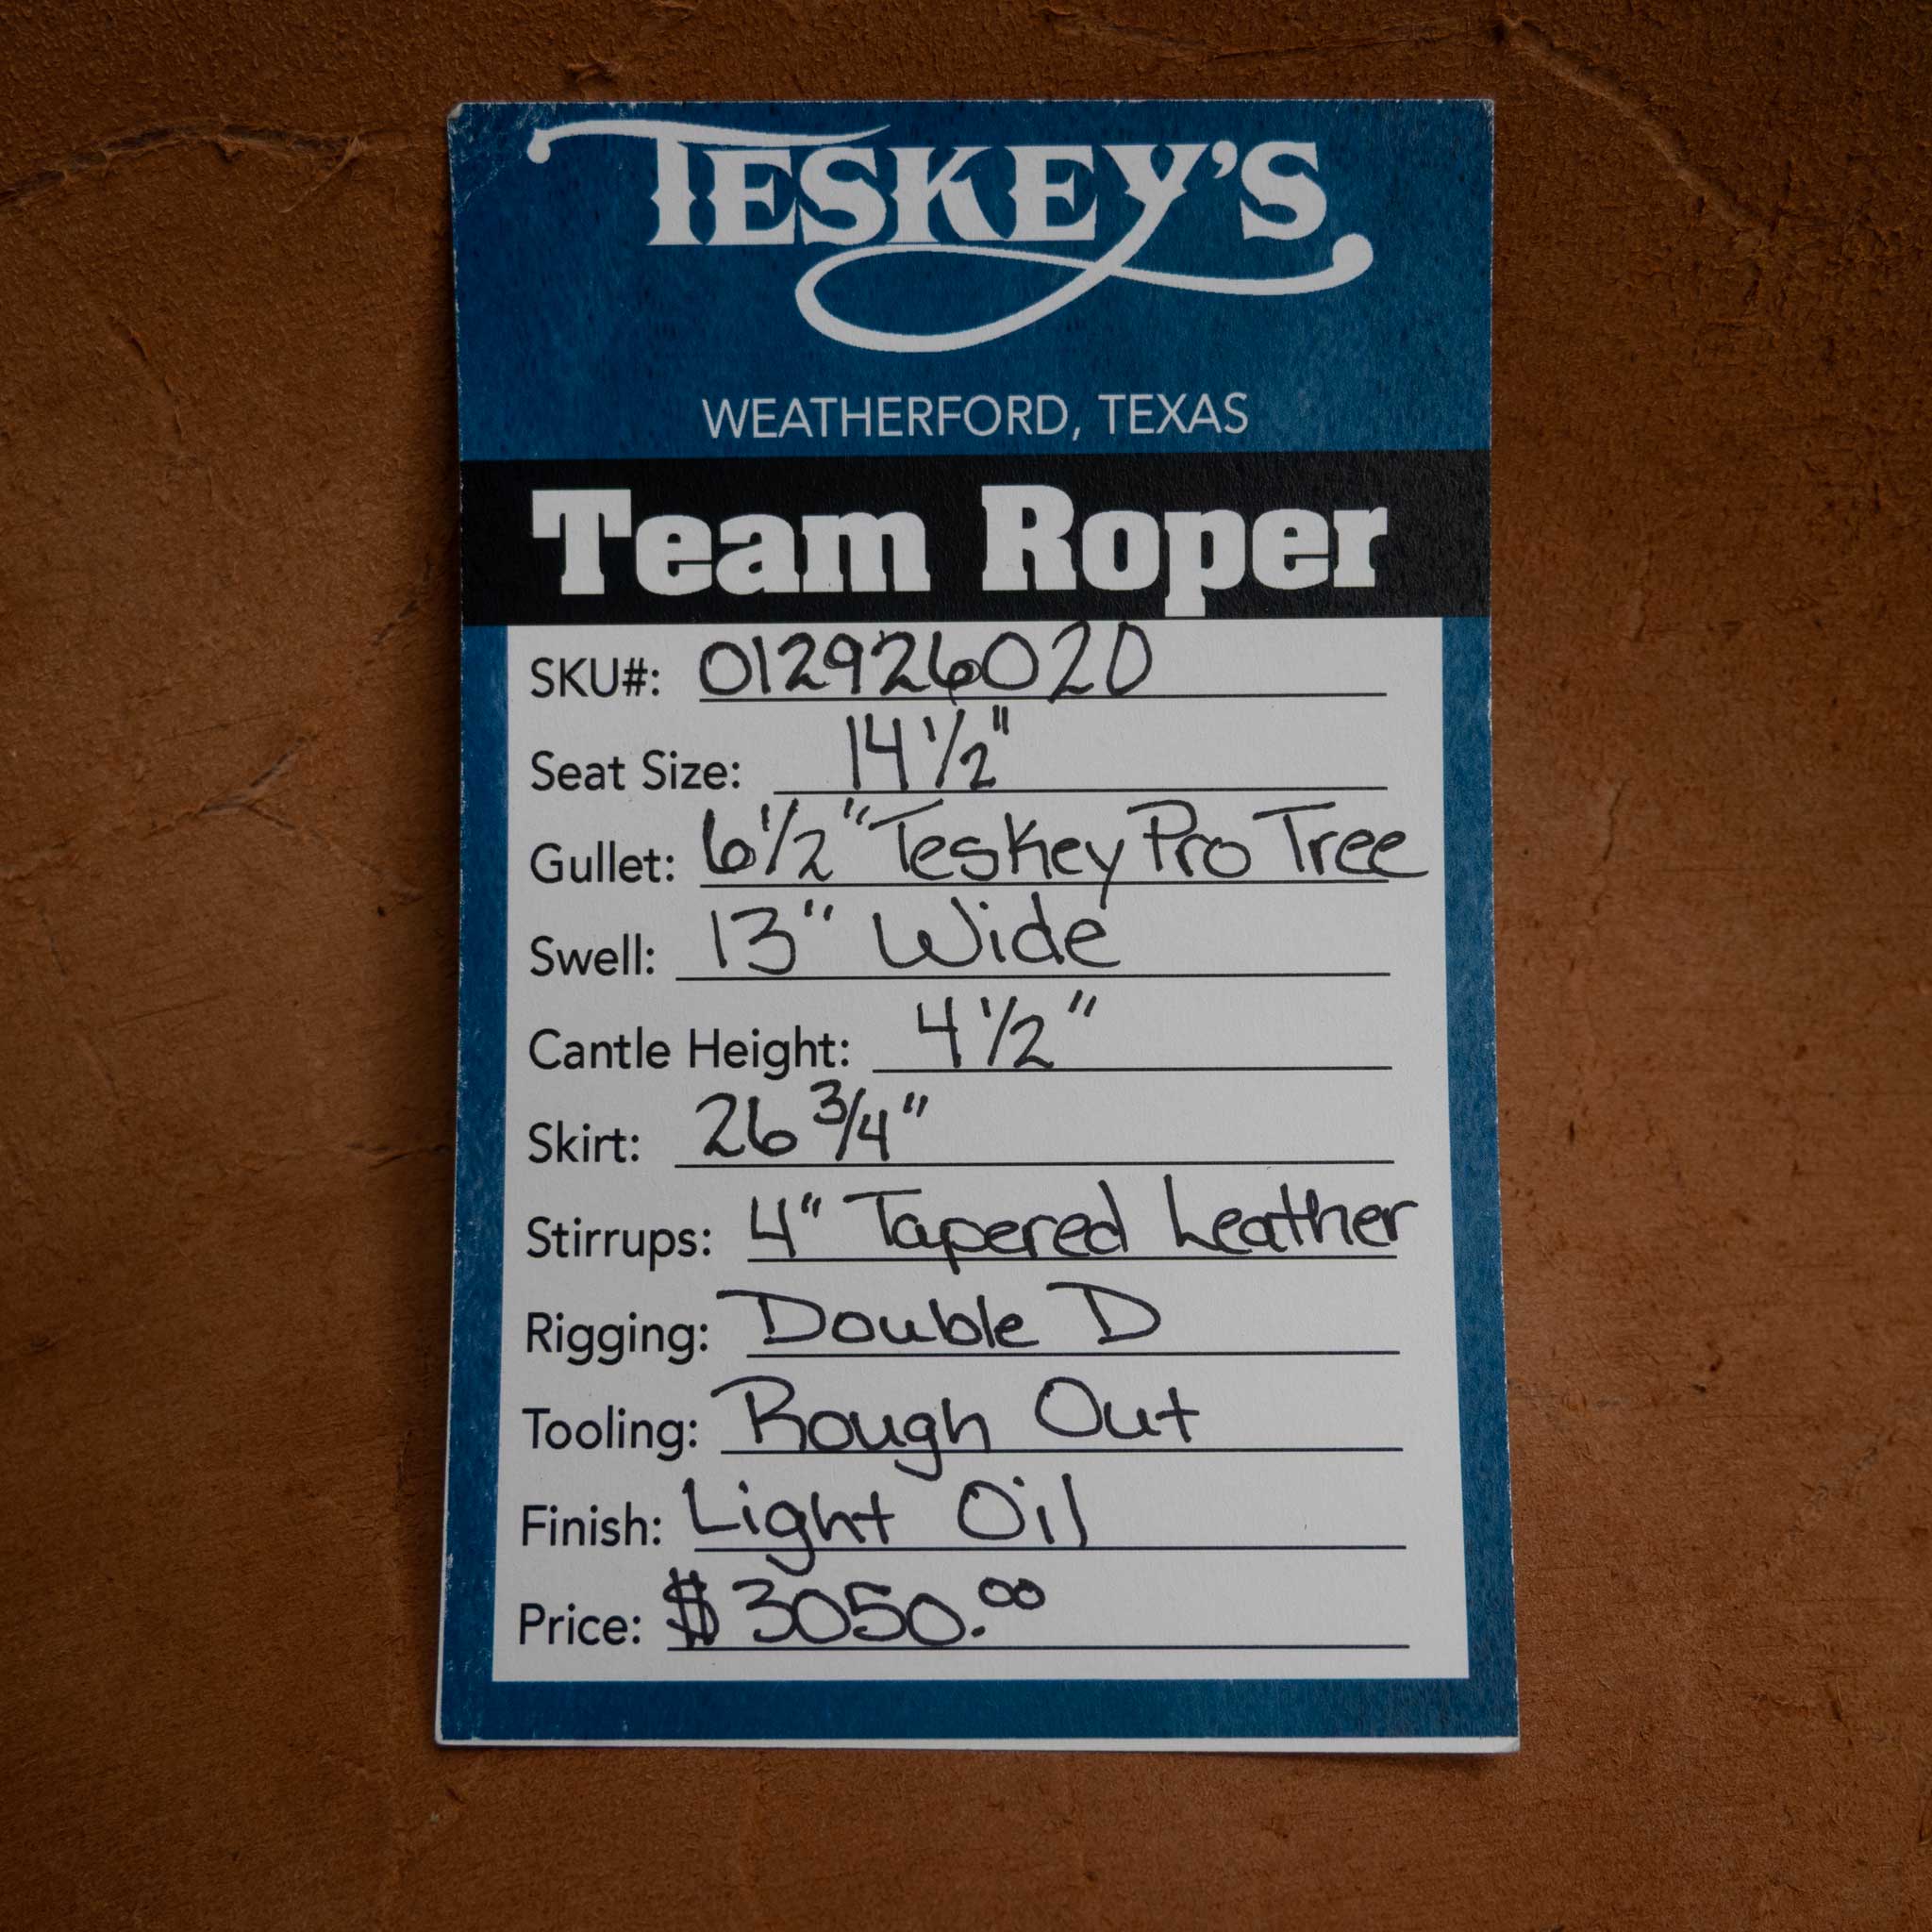 TESKEY'S
WEATHERFORD, TEXAS
Team Roper
SKU#: 012926020
Seat Size: 14 1/2"
Gullet: 6 1/2" Teskey Pro Tree
Swell: 13" Wide
Cantle Height: 4 1/2"
Skirt: 26 3/4"
Stirrups: 4" Tapered Leather
Rigging: Double D
Tooling: Rough Out
Finish: Light Oil
Price: $3050.00